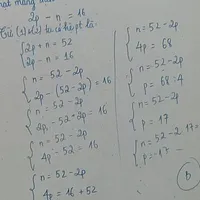 2p - n = 16
Từ (1) và (2) ta có hệ pt là:
2p + n = 52
2p - n = 16
n = 52 - 2p
2p - (52 - 2p) = 16
n = 52 - 2p
2p - 52 + 2p = 16
n = 52 - 2p
4p - 52 = 16
n = 52 - 2p
4p = 16 + 52
n = 52 - 2p
4p = 68
n = 52 - 2p
p = 68 : 4
n = 52 - 2p
p = 17
n = 52 - 2.17 =
p = 17